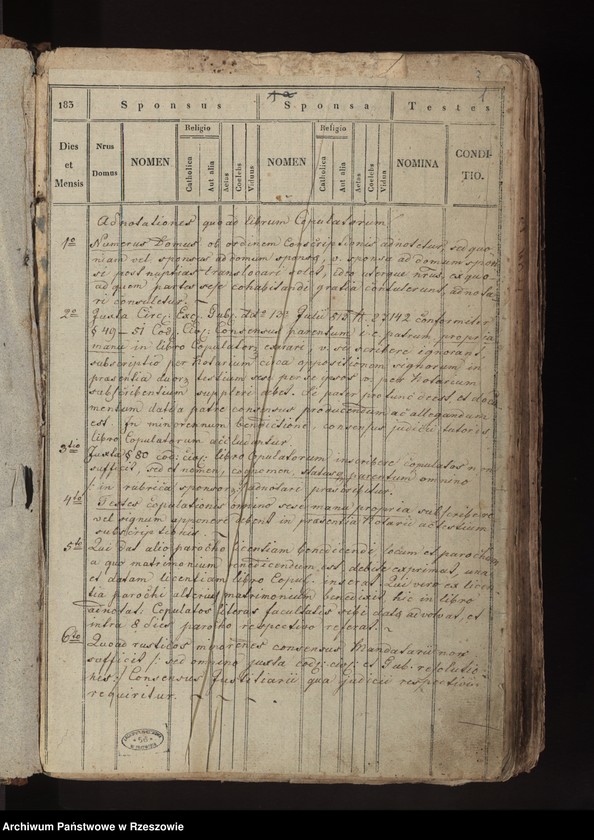 1
183
Sponsus
Sponsa
Testes
Dies et Mensis
Nrus Domus
NOMEN
Religio
Catholica
Aut alia
Aetas
Coelebs
Viduus
NOMEN
Religio
Catholica
Aut alia
Aetas
Coelebs
Vidua
NOMINA
CONDI-
TIO.
Adnotationes quoad librum Copulatorum
1o Numerus Domus ob ordinem Conscriptionis adnotetur, sed quo-
niam vel sponsus ad domum sponsae, v. sponsa ad domum spon-
si post nuptias translocari solet, ideo uterque nrus, ex quo
ad quem partes sese cohabitandi gratia contulerunt, adnota-
ri consuletur.
2o Juxta Circ. Exc. Gub. ddto 130 Julii 815 N. 27142 conformiter
§ 49-51 Cod. Civ. Consensus parentum i.e. patrum, propria
manu in libro Copulator exarari, v. si scribere ignorant,
subscriptio per Notarium circa appositionem signorum in
praesentia duor testium seu per se ipsos v. per Notarium
subscribentium suppleri debet. Si pater protunc deest, et docu-
mentum datae a patre consensus producendum ac allegandum
est. In minorenum benedictione, consensus judicii tutoris
libro Copulatorum
3tio Juxta § 80 cod: civ: libro Copulatorum inscribere copulatos non
sufficit, sed et nomen, cognomen, parentum omnino
/: in rubrica sponsor :/ adnotari praescribitur.
4to Testes copulationis omnino sese manu propria subscribere
vel signum apponere debent in praesentia Notarii ac testium
subscriptionis.
5to Qui dat alio parocho licentiam benedicendi locum et parochum
a quo matrimonium benedicendum est, debite exprimat, una
et datam licentiam libro Copul: inserat. Qui vero ex licen-
tia parochi alterius matrimonium benedixit, hic in libro
adnotat: Copulatos literas facultatis sibi datas advolvat, et
intra 8 dies parocho respectivo referat.
6to Quoad rusticos minorenes consensus Mandatarii non
sufficit /: sed omnino juxta cod: civ: et Gub. resolutio-
nes :/ Consensus Justitiarii qua judicii respectivi
requiritur.
Archiwum Państwowe w Rzeszowie